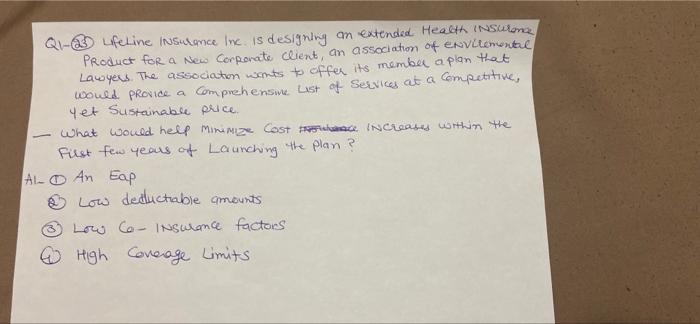 Q1-(23) LifeLine INSurance Inc. is designing an extended Health INSurance
Product for a New Corporate Client, an association of envilemental
Lawyers. The association wants to offer its member a plan that
would provide a Comprehensive List of Services at a Competitive,
yet Sustainable price.
— What would help Minimize Cost INCreases within the
First few years of Launching the plan?
A1- ① An Eap
② Low deductiable amounts
③ Low Co-INSurance factors
④ High Coverage Limits